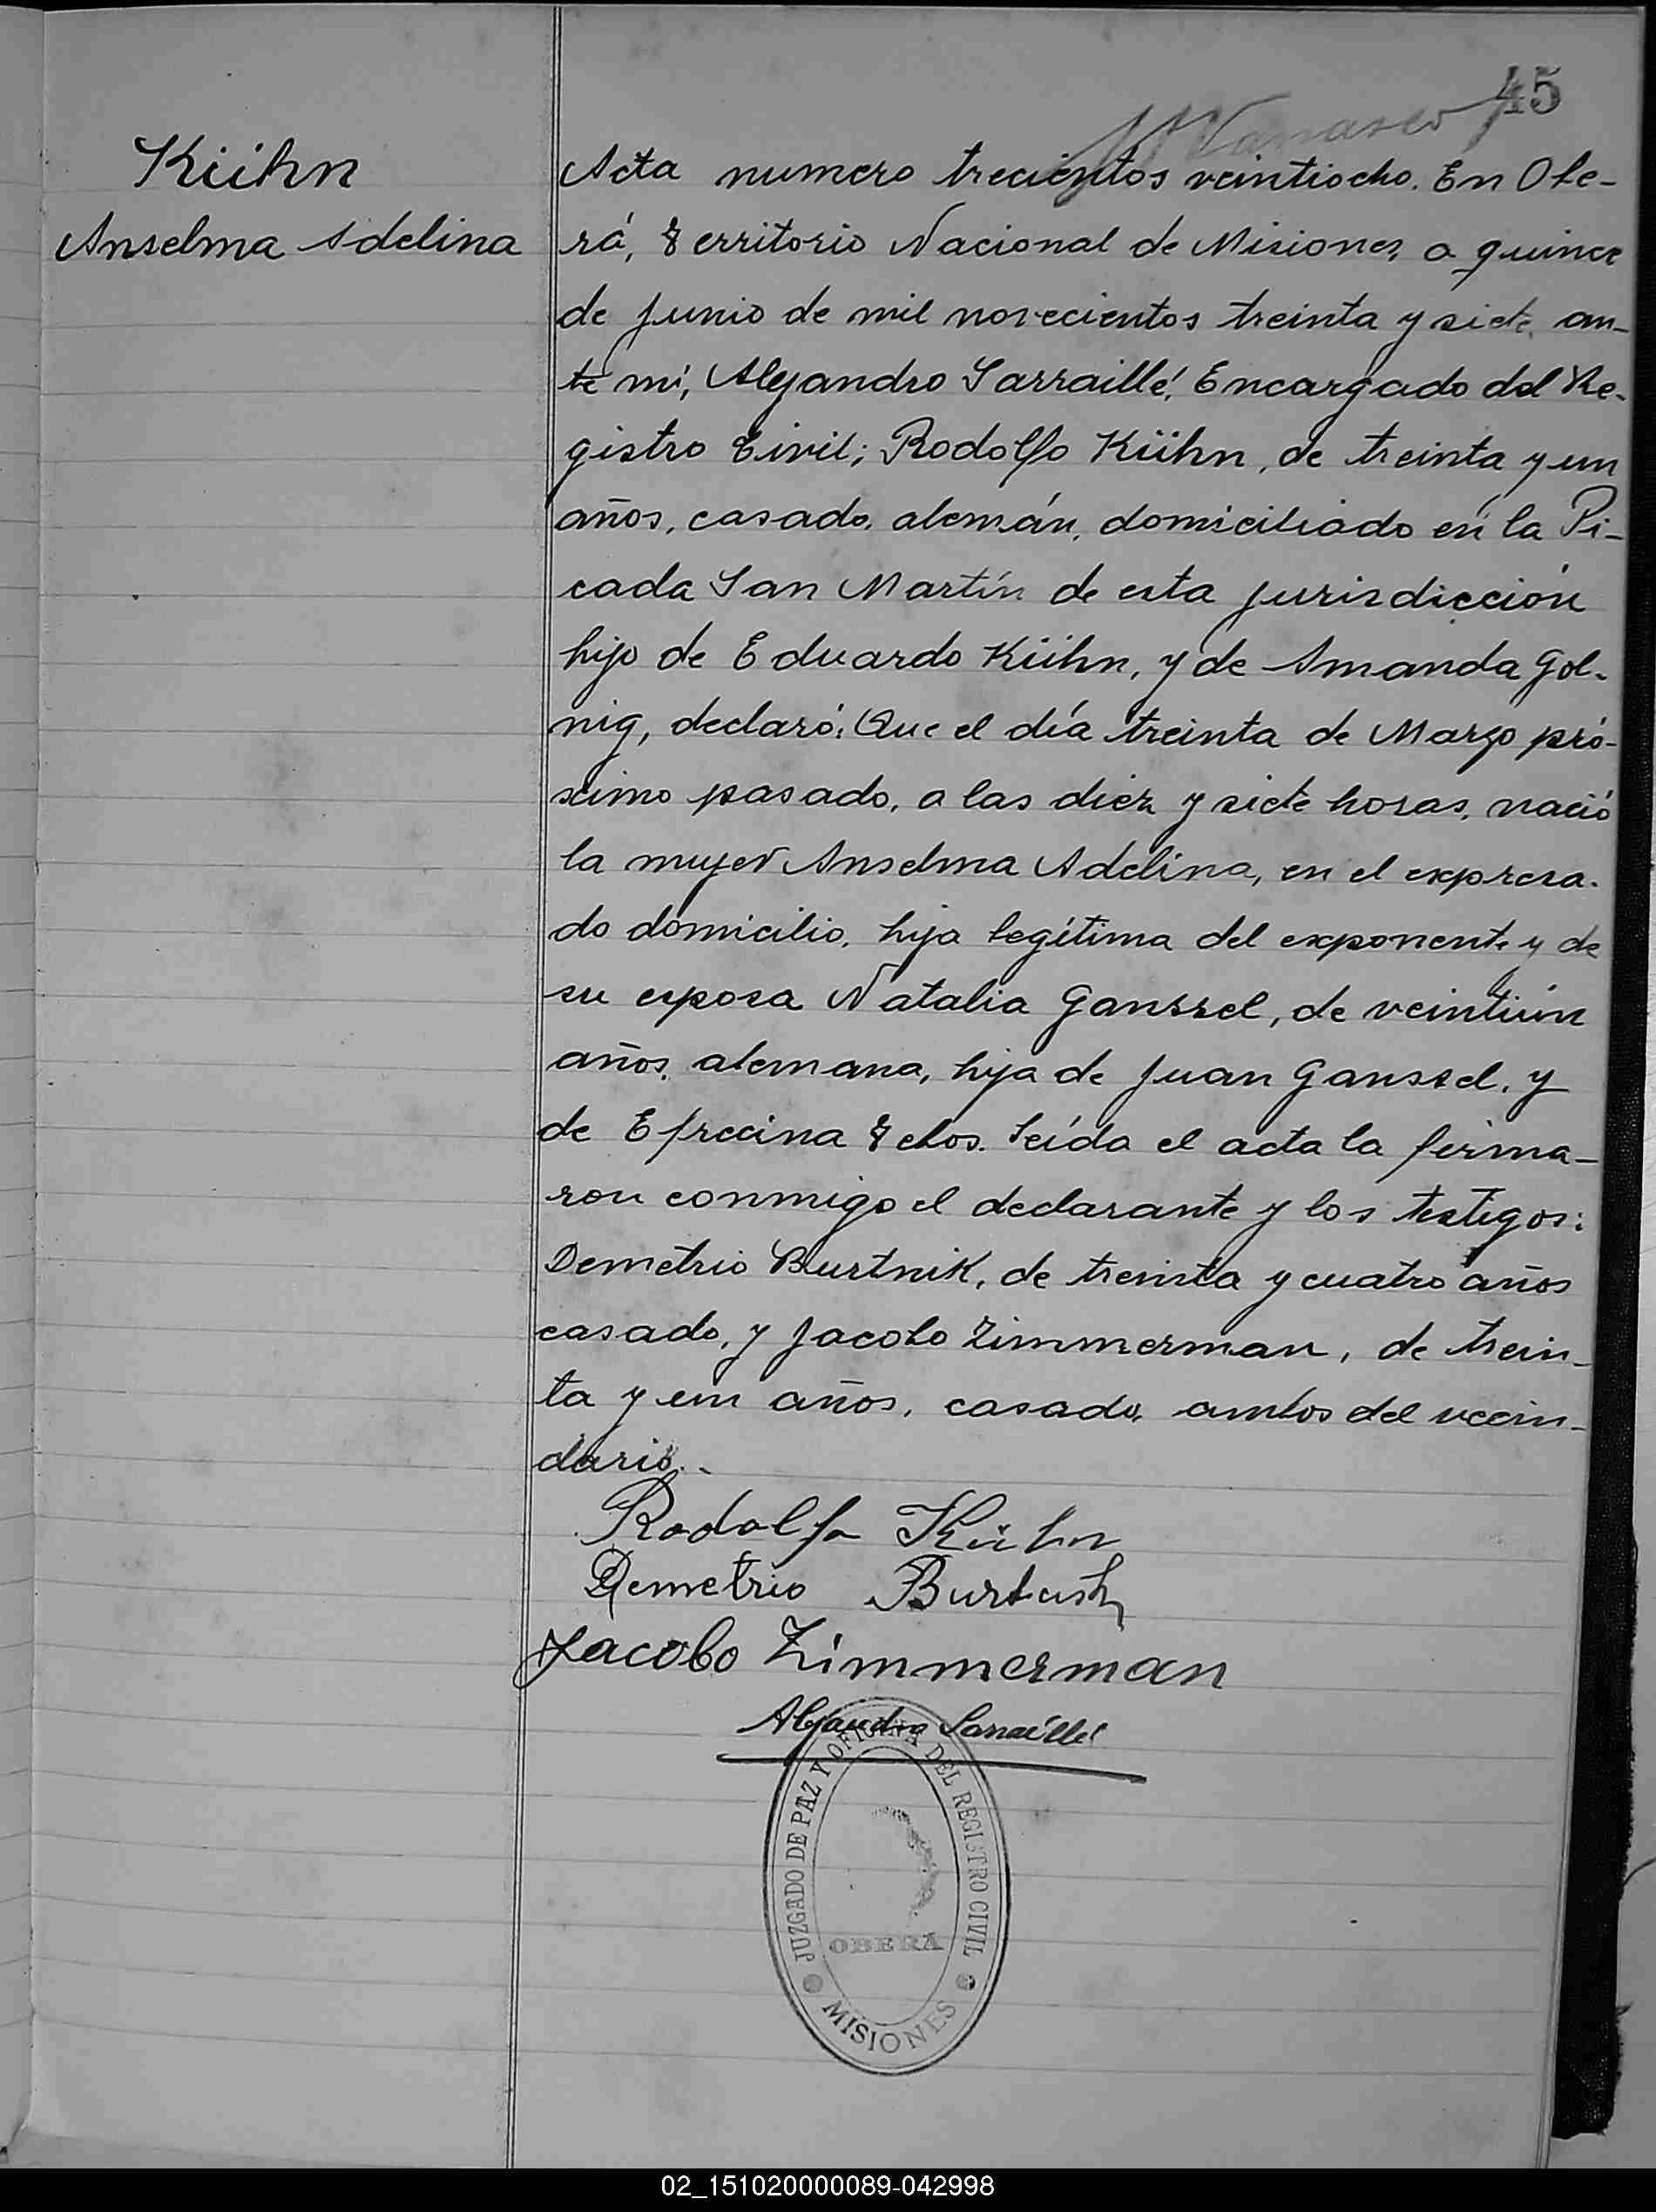 45
Kühn
Anselma Adelina
Acta numero trecientos veintiocho. En Obe-
rá, Territorio Nacional de Misiones, a quince
de junio de mil novecientos treinta y siete, an-
te mí, Alejandro Sarraillé, Encargado del Re-
gistro Civil; Rodolfo Kühn, de treinta y un
años, casado, alemán, domiciliado en la Pi-
cada San Martín de esta jurisdicción
hijo de Eduardo Kühn, y de Amanda Gol-
nig, declaró: Que el día treinta de Marzo pró-
ximo pasado, a las diez y siete horas, nació
la mujer Anselma Adelina, en el expresa-
do domicilio, hija legítima del exponente y de
su esposa Natalia Ganssel, de veintiún
años, alemana, hija de Juan Ganssel, y
de Efrecina Telos. Leída el acta la firma-
ron conmigo el declarante y los testigos:
Demetrio Burtnik, de treinta y cuatro años
casado, y Jacobo Zimmerman, de trein-
ta y un años, casado, ambos del vecin-
dario.-
Rodolfo Kühn
Demetrio
Jacobo Zimmerman
Alejandro Sarraillé
JUZGADO DE PAZ Y OFICINA DEL REGISTRO CIVIL
OBERA
MISIONES
02_151020000089-042998